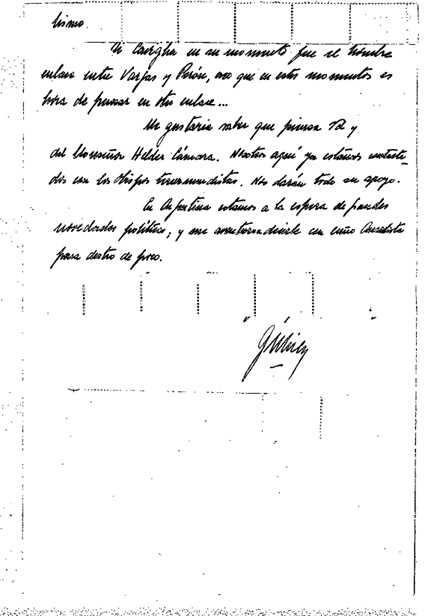 lismo.
Si en su momento fue el hombre
enlace entre Vargas y Perón, creo que en estos momentos es
hora de pensar en otro enlace...
Me gustaria saber que piensa Ud y
del Monseñor Helder Cámara. Nosotros aquí ya estamos contacta_
dos con los Obispos tercermundistas. Nos darán todo su apoyo.
En Argentina estamos a la espera de grandes
novedades políticas, y me decirle con cuño
para dentro de poco.